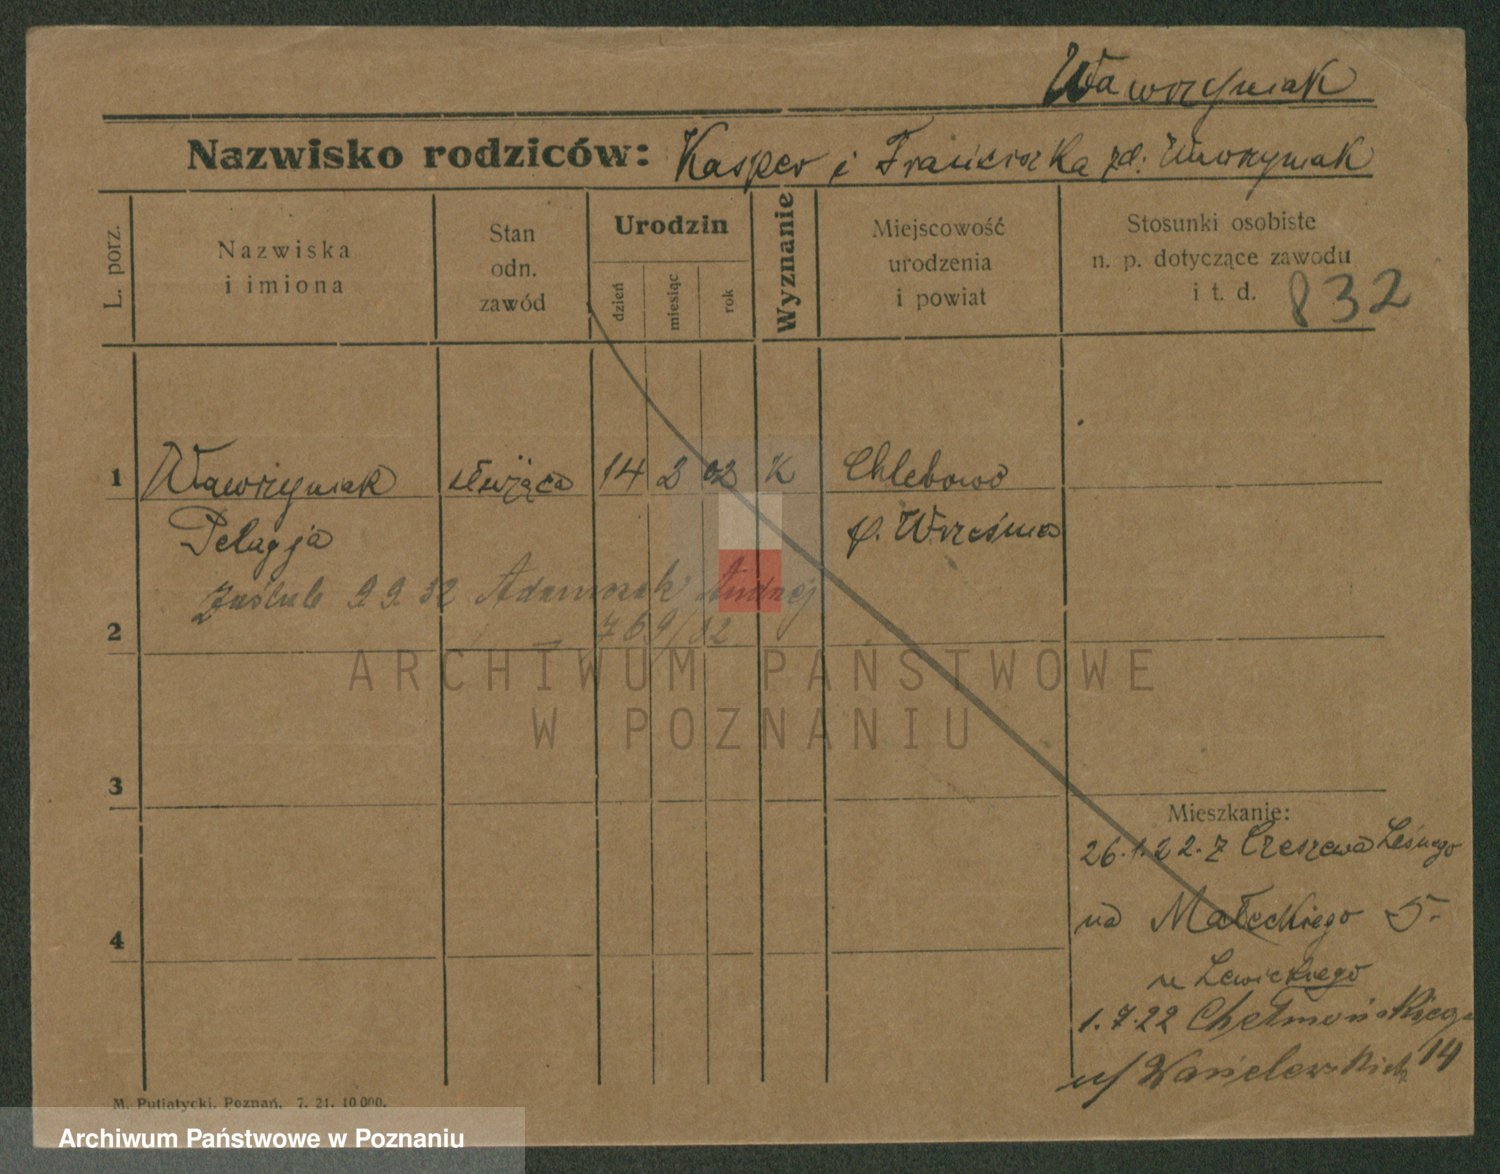 Wawrzyniak
Nazwisko rodziców: Kasper i Franciszka zd.
L. porz.
Nazwiska
i imiona
Stan
odn.
zawód
Urodzin
dzień
miesiąc
rok
Wyznanie
Miejscowość
urodzenia
i powiat
Stosunki osobiste
n. p. dotyczące zawodu
i t. d.
832
1 Wawrzyniak służąca 14 2 02 K Chlebowo
Pelagja p. Września
Zaślub 9.9.32 Adamczak Andrzej
2 769/32
ARCHIWUM PAŃSTWOWE
W POZNANIU
3
Mieszkanie:
26.1.22. z Czeszewa Leśnego
na Małeckiego 5.
4
u Lewickiego
1.7.22 Chełmońskiego
14
M. Putiatycki, Poznań. 7. 21. 10 000.
Archiwum Państwowe w Poznaniu